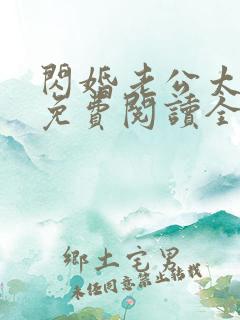 閃婚老公大
免費閱讀全
鄉土宅男
未經同意禁止轉載